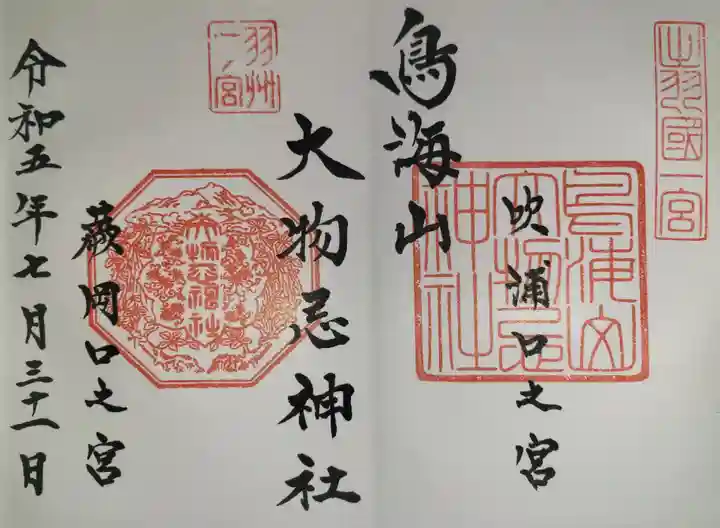 出羽國一宮
吹浦口之宮
鳥海山大物忌神社
鳥海山
大物忌神社
羽州一ノ宮
大物忌神社
蕨岡口之宮
令和五年七月三十一日